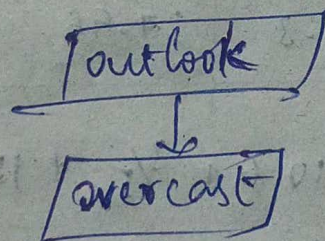 outlook
overcast